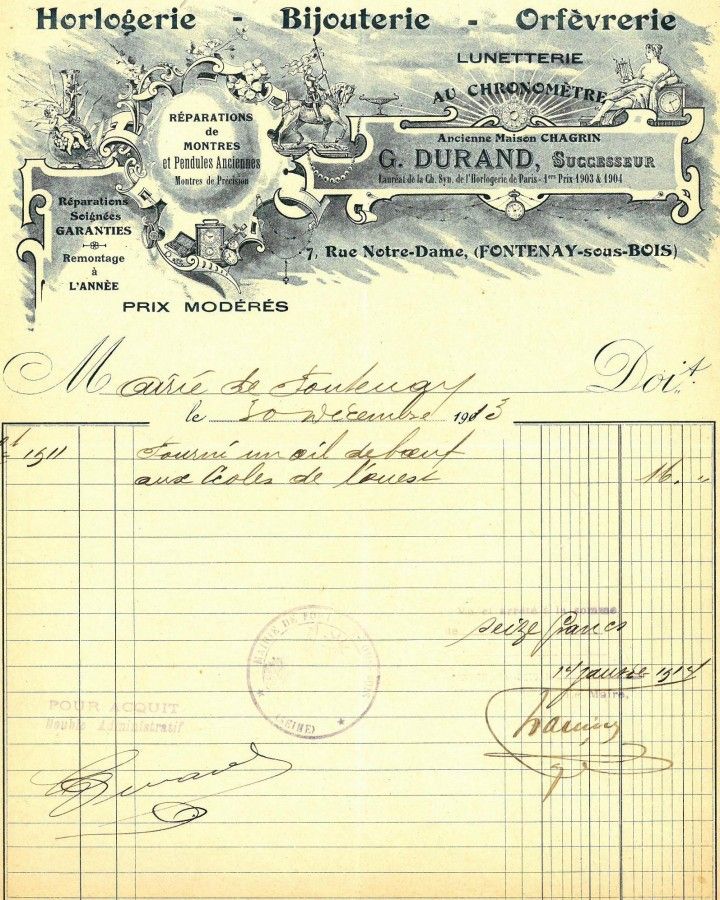 Horlogerie - Bijouterie - Orfèvrerie
LUNETTERIE
AU CHRONOMÈTRE
RÉPARATIONS
de
MONTRES
et Pendules Anciennes
Montres de Précision
Ancienne Maison CHAGRIN
G. DURAND, SUCCESSEUR
Lauréat de la Ch. Syn. de l'Horlogerie de Paris - 1ers Prix 1903 & 1904
Réparations
Soignées
GARANTIES
Remontage
à
L'ANNÈE
7, Rue Notre-Dame, (FONTENAY-sous-BOIS)
PRIX MODÉRÉS
Mairie de Fontenay Doit
le 30 Décembre 1913
1911 Fourni un œil de bœuf
aux écoles de l'ouest 16. "
MAIRIE DE
(SEINE)
arrêté à la somme
de seize francs
14 janvier 1914
Maire,
POUR ACQUIT
Double Administratif
Durand